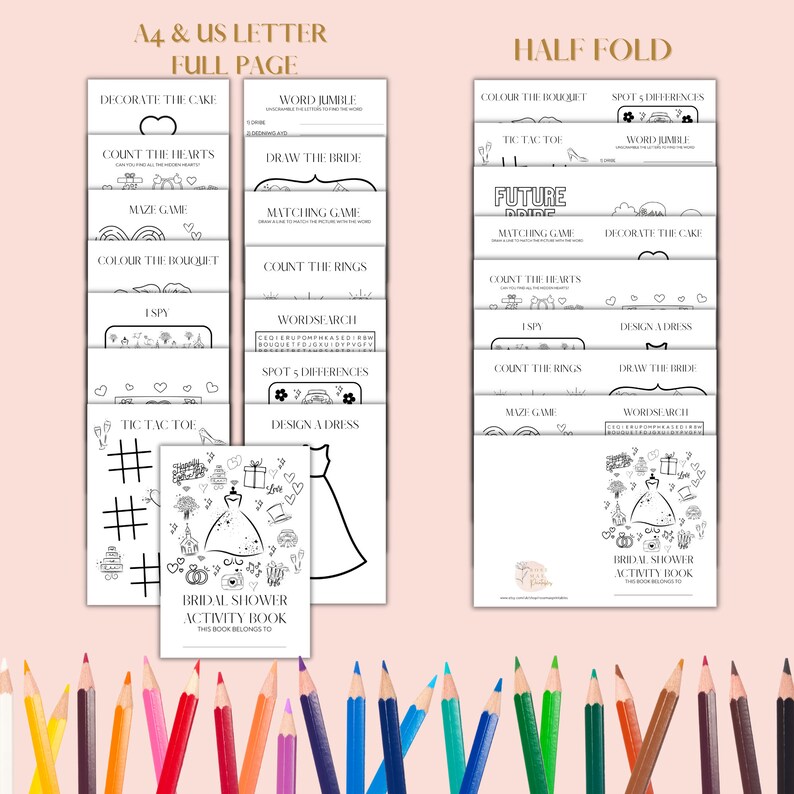 A4 & US LETTER
FULL PAGE
DECORATE THE CAKE
COUNT THE HEARTS
CAN YOU FIND ALL THE HIDDEN HEARTS?
MAZE GAME
COLOUR THE BOUQUET
I SPY
TIC TAC TOE
WORD JUMBLE
UNSCRAMBLE THE LETTERS TO FIND THE WORD
1) DRIBE
2) DEDNIWG AYD
DRAW THE BRIDE
MATCHING GAME
DRAW A LINE TO MATCH THE PICTURE WITH THE WORD
COUNT THE RINGS
WORDSEARCH
SPOT 5 DIFFERENCES
DESIGN A DRESS
Happily
Ever After
Love
BRIDAL SHOWER
ACTIVITY BOOK
THIS BOOK BELONGS TO
HALF FOLD
COLOUR THE BOUQUET
SPOT 5 DIFFERENCES
TIC TAC TOE
WORD JUMBLE
UNSCRAMBLE THE LETTERS TO FIND THE WORD
1) DRIBE
FUTURE
BRIDE
MATCHING GAME
DRAW A LINE TO MATCH THE PICTURE WITH THE WORD
DECORATE THE CAKE
COUNT THE HEARTS
CAN YOU FIND ALL THE HIDDEN HEARTS?
I SPY
DESIGN A DRESS
COUNT THE RINGS
DRAW THE BRIDE
MAZE GAME
WORDSEARCH
Happily
Ever After
Love
BRIDAL SHOWER
ACTIVITY BOOK
THIS BOOK BELONGS TO